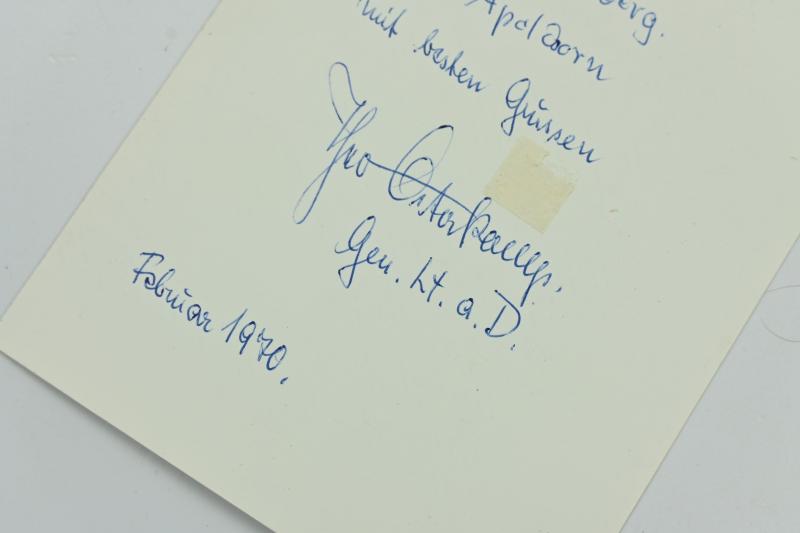 berg.
Apeldoorn
mit besten Grüssen
Theo Osterkamp.
Gen. Lt. a. D.
Februar 1970.